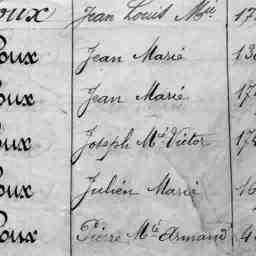 oux Jean Louis M^el 17
Roux Jean Marie 13
Roux Jean Marie 17
Roux Joseph M^e Victor 174
Roux Julien Marie 16
Roux Pierre M^e Armand 4